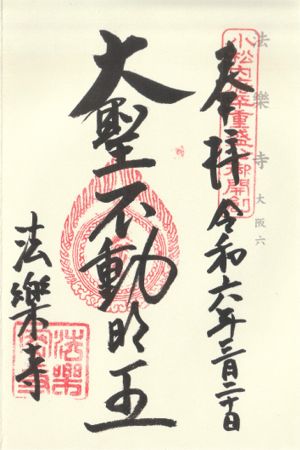 法樂寺 大阪六
小松内府平重盛公御開創
奉拝 令和六年三月二十日
大聖不動明王
法樂寺
法樂寺